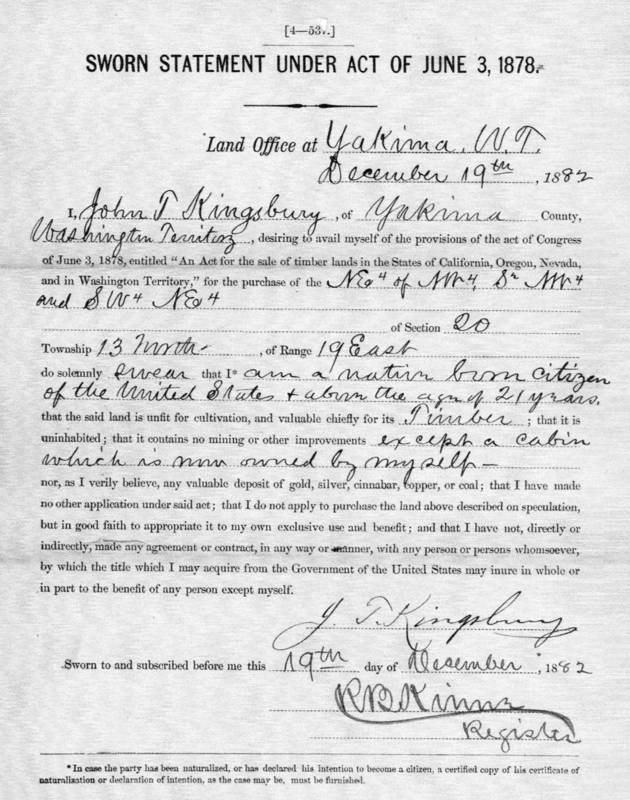 [4—537.]
SWORN STATEMENT UNDER ACT OF JUNE 3, 1878.
Land Office at Yakima, W. T.
December 19th, 1882
I, John T Kingsbury, of Yakima County,
Washington Territory, desiring to avail myself of the provisions of the act of Congress
of June 3, 1878, entitled “An Act for the sale of timber lands in the States of California, Oregon, Nevada,
and in Washington Territory,” for the purchase of the NE4 of NW4, NW4
and SW4 NE4
of Section 20
Township 13 North, of Range 19 East
do solemnly swear that I* am a native born citizen
of the United States + above the age of 21 years,
that the said land is unfit for cultivation, and valuable chiefly for its Timber; that it is
uninhabited; that it contains no mining or other improvements except a cabin
which is now owned by myself—
nor, as I verily believe, any valuable deposit of gold, silver, cinnabar, copper, or coal; that I have made
no other application under said act; that I do not apply to purchase the land above described on speculation,
but in good faith to appropriate it to my own exclusive use and benefit; and that I have not, directly or
indirectly, made any agreement or contract, in any way or manner, with any person or persons whomsoever,
by which the title which I may acquire from the Government of the United States may inure in whole or
in part to the benefit of any person except myself.
J T. Kingsbury
Sworn to and subscribed before me this 19th day of December, 1882
R B Kinne
Register
*In case the party has been naturalized, or has declared his intention to become a citizen, a certified copy of his certificate of
naturalization or declaration of intention, as the case may be, must be furnished.